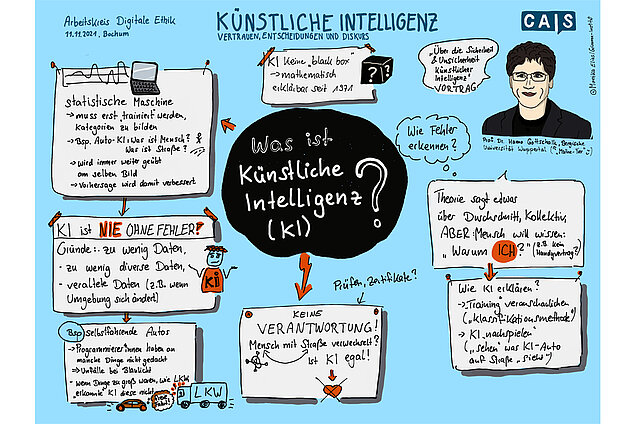 Arbeitskreis Digitale Ethik
11.11.2021, Bochum
KÜNSTLICHE INTELLIGENZ
VERTRAUEN, ENTSCHEIDUNGEN UND DISKURS
CAIS
KI keine „black box"
→ mathematisch
erklärbar seit 1971
?
?
„Über die Sicherheit
& Unsicherheit
Künstlicher
Intelligenz"
VORTRAG
Prof. Dr. Hanno Gottschalk, Bergische
Universität Wuppertal
statistische Maschine
→ muss erst „trainiert" werden,
Kategorien zu bilden
→ Bsp. Auto-KI: Was ist Mensch?
Was ist Straße?
→ wird immer weiter geübt
am selben Bild
→ Vorhersage wird damit verbessert
Was ist
Künstliche
Intelligenz
(KI)
?
Wie Fehler
erkennen?
Theorie sagt etwas
über Durchschnitt, Kollektiv,
ABER: Mensch will wissen:
„Warum ICH?" (z.B. kein
Handyvertrag?)
KI ist NIE OHNE FEHLER?
Gründe: - zu wenig Daten,
- zu wenig diverse Daten,
- veraltete Daten (z.B. wenn
Umgebung sich ändert)
KI
Prüfen, Zertifikate?
KEINE
VERANTWORTUNG!
Mensch mit Straße verwechselt?
Ist KI egal!
Wie KI erklären?
→ „Training" veranschaulichen
(„Klassifikationsmethode")
→ KI „nachspielen"
/ „sehen" was KI-Auto
auf Straße „sieht"
Bsp selbstfahrende Autos
→ Programmierer*innen haben an
manche Dinge nicht gedacht
→ Unfälle bei Blaulicht
- wenn Dinge zu groß waren, wie LKW
„erkannte" KI diese nicht
LKW